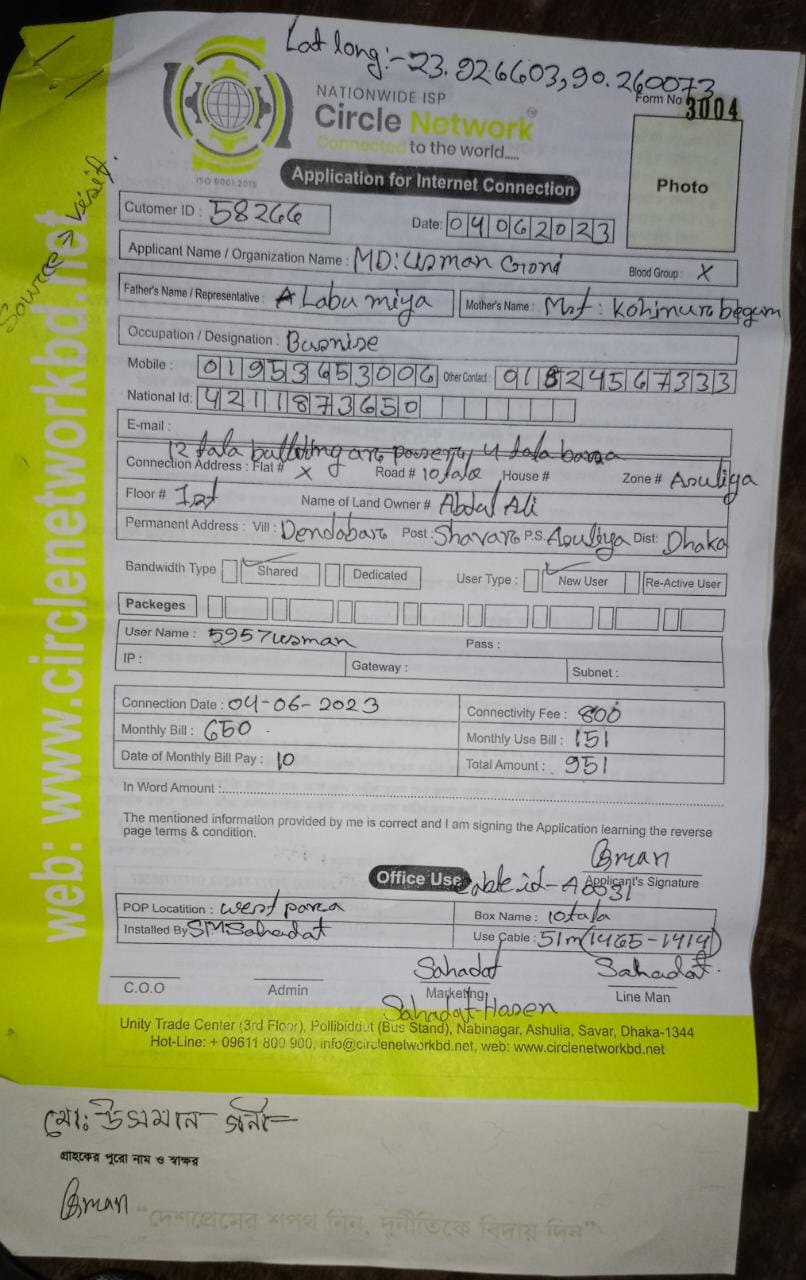 Lat long:- 23.926603, 90.260073
NATIONWIDE ISP
Form No 3004
Circle Network
Connected to the world.....
ISO 9001:2015
Application for Internet Connection
Photo
Source > Visit.
Cutomer ID : 58266
Date: 04062023
Applicant Name / Organization Name : MD: Usman Goni
Blood Group : X
Father's Name / Representative : ALabu miya
Mother's Name : Mst: Kohinur begum
Occupation / Designation : Busnise
Mobile : 01953653006 Other Contact : 01824567333
National Id: 4211873650
E-mail :
12 tala 4 tala
Connection Address : Flat # X Road # 10 tala House # Zone # Asuliya
Floor # 1st Name of Land Owner # Abdul Ali
Permanent Address : Vill : Dendabar Post : Shavar P.S. Asuliya Dist: Dhaka
Bandwidth Type Shared Dedicated User Type : New User Re-Active User
Packeges
User Name : 5957usman Pass :
IP : Gateway : Subnet :
Connection Date : 04-06-2023 Connectivity Fee : 800
Monthly Bill : 650 Monthly Use Bill : 151
Date of Monthly Bill Pay : 10 Total Amount : 951
In Word Amount :
The mentioned information provided by me is correct and I am signing the Application learning the reverse
page terms & condition.
Applicant's Signature
Office Use Cable id-
POP Locatition : west para Box Name : 10tala
Installed By SM Sahadat Use Cable : 51m (1465-1414)
Sahadat Sahadat.
C.O.O Admin Marketing Line Man
Sahadat Hosen
Unity Trade Center (3rd Floor), Pollibiddut (Bus Stand), Nabinagar, Ashulia, Savar, Dhaka-1344
Hot-Line: + 09611 800 900, info@circlenetworkbd.net, web: www.circlenetworkbd.net
web: www.circlenetworkbd.net
মো: উসমান গনী
গ্রাহকের পুরো নাম ও স্বাক্ষর
"দেশপ্রেমের শপথ নিন, দুর্নীতিকে বিদায় দিন"